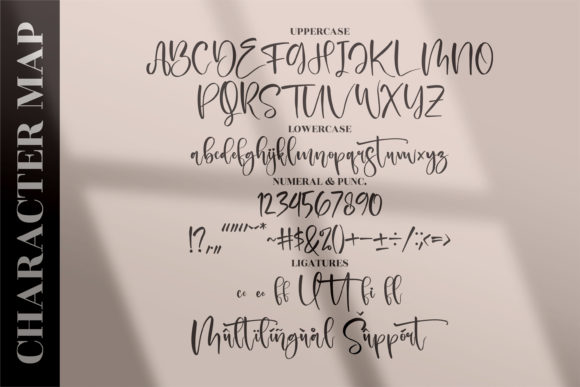 CHARACTER MAP
UPPERCASE
ABCDEFGHIJKLMNO
PQRSTUVWXYZ
LOWERCASE
abcdefghijklmnopqrstuvwxyz
NUMERAL & PUNC.
1234567890
!?,.„""''~* ~#$&%()+-–±÷/:;<=>
LIGATURES
cc ee ff tt ll fi ff
Mûltïlíñgùàl Šûppórt